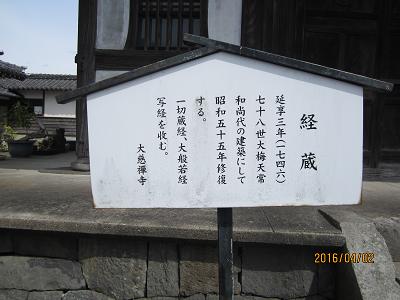 経蔵
延享三年(一七四六)
七十八世大梅天常
和尚代の建築にして
昭和五十五年修復
する。
一切蔵経、大般若経
写経を収む。
大慈禅寺
2016/04/02